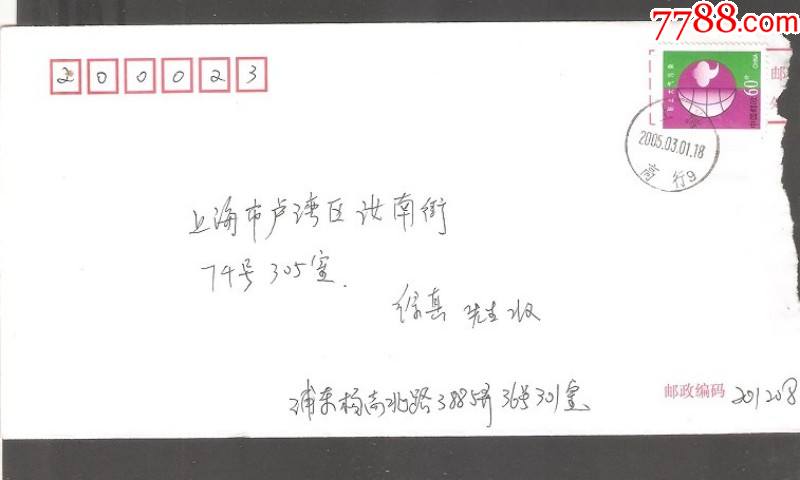 7788.com
200023
60分
CHINA
中国邮政
2005.03.01.18
高行9
上海市卢湾区汝南街
74号305室.
徐真 先生收
浦东杨高北路3885弄36号301室
邮政编码 201208